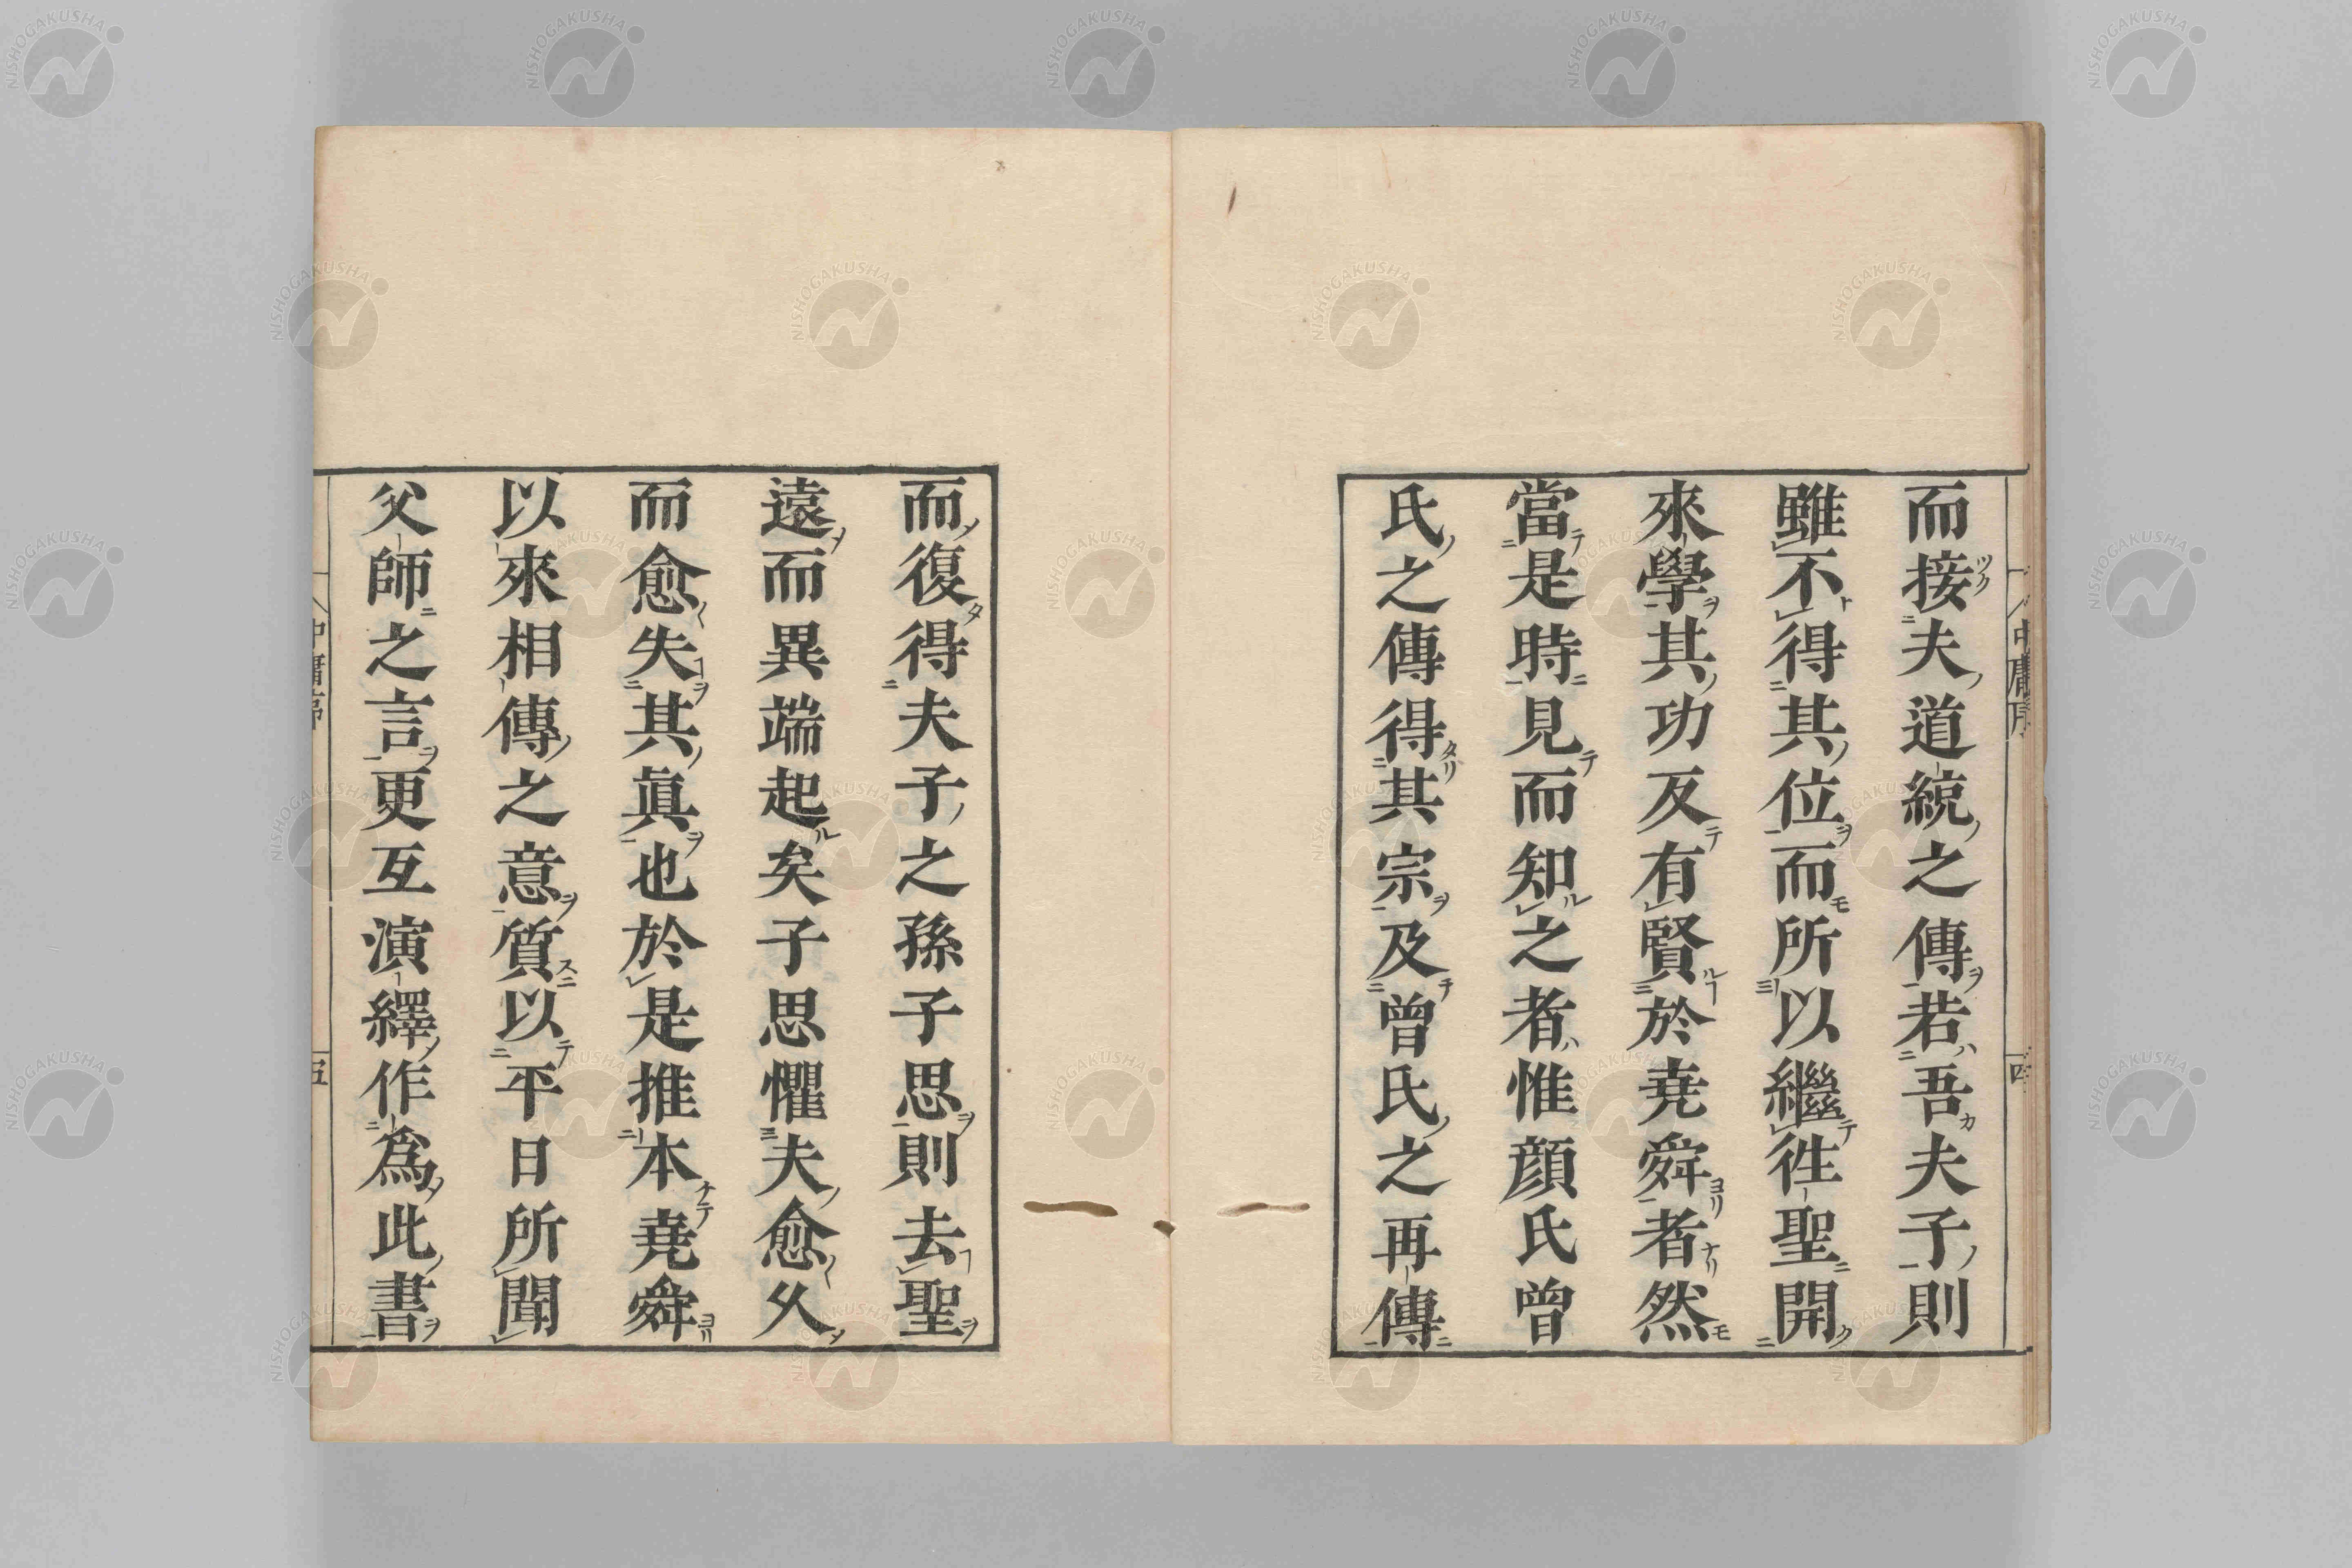 而接夫道統之傳若吾夫子則
雖不得其位而所以繼徃聖開
來學其功反有賢於堯舜者然
當是時見而知之者惟顔氏曾
氏之傳得其宗及曾氏之再傳
而復得夫子之孫子思則去聖
遠而異端起矣子思懼夫愈久
而愈失其眞也於是推本堯舜
以來相傳之意質以平日所聞
父師之言更互演繹作爲此書
中庸序
四
中庸序
五
NISHOGAKUSHA